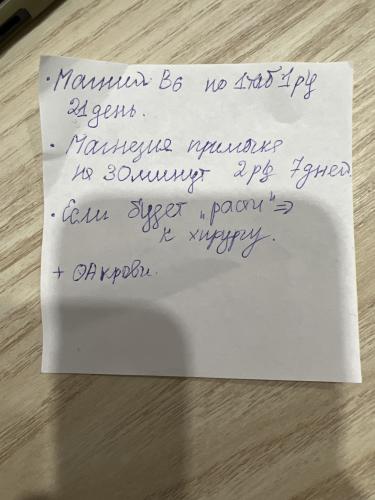 · Магний В6 по 1таб 1р/д
21 день.
· Магнезия примочка
на 30 минут 2р/д 7дней
· Если будет "расти" ⇒
к хирургу.
+ ОА крови.